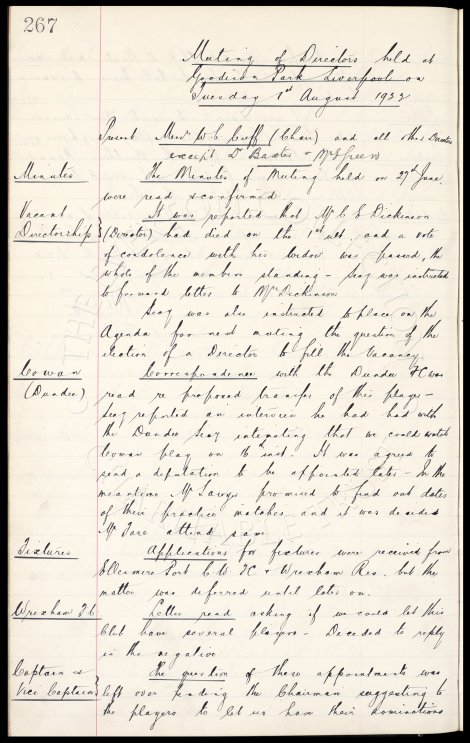 267
Meeting of Directors held at
Goodison Park Liverpool on
Tuesday 1st August 1922
Present Messrs W. C. Cuff (Chair) and all other Directors
except Dr Baxter & Mr Green
Minutes The Minutes of Meeting held on 27th June
were read & confirmed
Vacant It was reported that Mr C. E. Dickinson
Directorship (Director) had died on the 1st ult. and a vote
of condolence with his widow was passed, the
whole of the members standing - Secy was instructed
to forward letter to Mrs Dickinson
Secy was also instructed to place on the
Agenda for next meeting the question of the
election of a Director to fill the Vacancy.
Cowan Correspondence with the Dundee FC was
(Dundee) read re proposed transfer of this player -
Secy reported an interview he had had with
the Dundee Secy intimating that we could watch
Cowan play on inst. It was agreed to
send a deputation to be appointed later - In the
meantime Mr Sawyer promised to find out dates
of their practice matches and it was decided
Mr attend same.
Fixtures Applications for fixtures were received from
Ellesmere Port C.W. FC & Wrexham Res. but the
matter was deferred until later on.
Wrexham F.C Letter read asking if we could let this
Club have several players - Decided to reply
in the negative.
Captain & The question of these appointments was
Vice Captain left over pending the Chairman suggesting to
the players to let us have their nominations